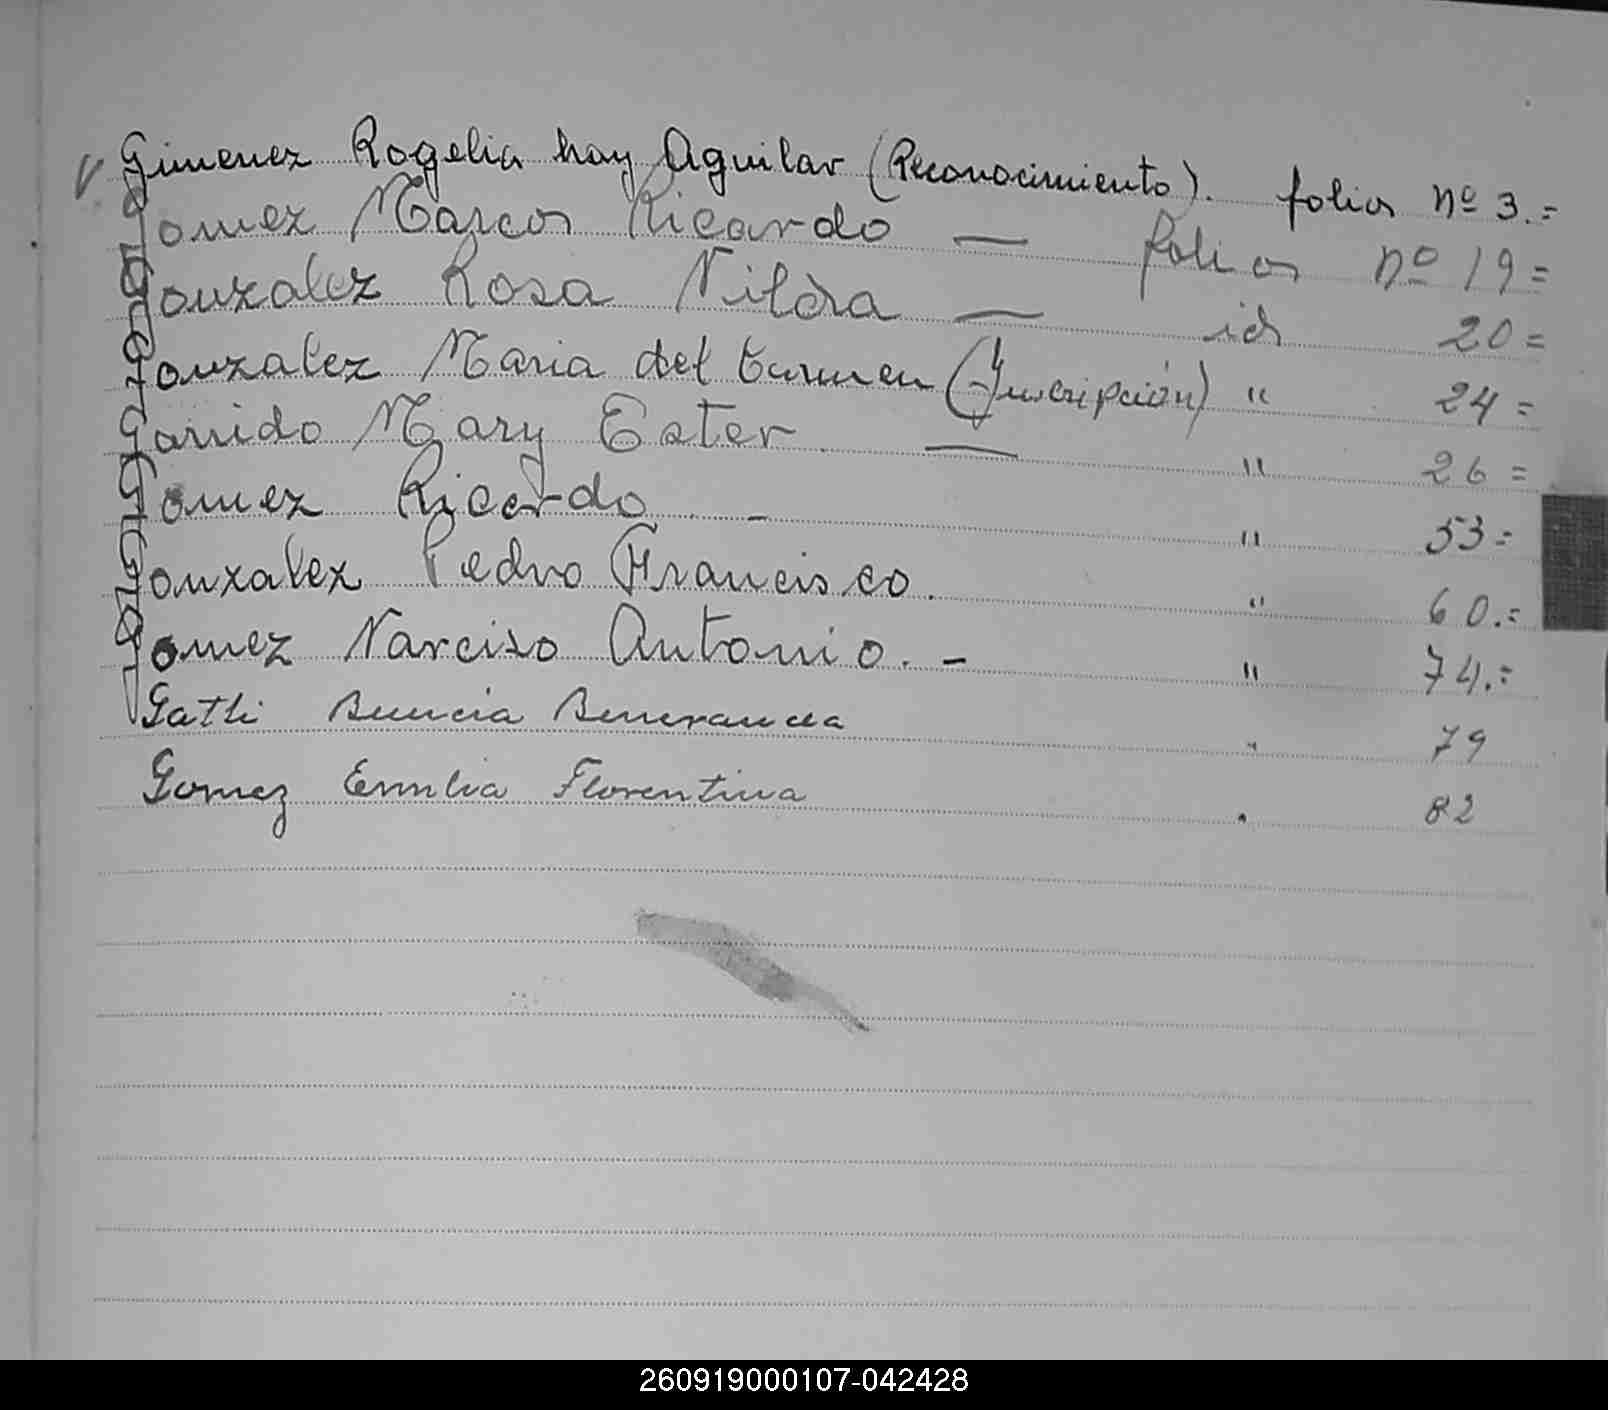 Gimenez Rogelia hoy Aguilar (Reconocimiento). folios nº 3.=
Gomez Marcos Ricardo — folios nº 19=
Gonzalez Rosa Nilda — id 20=
Gonzalez Maria del Carmen (Inscripción) " 24=
Garrido Mary Ester — " 26=
Gomez Ricardo - " 53=
Gonzalez Pedro Francisco. " 60.=
Gomez Narciso Antonio. - " 74.=
Gatti " 79
Gomez Emilia Florentina " 82
260919000107-042428